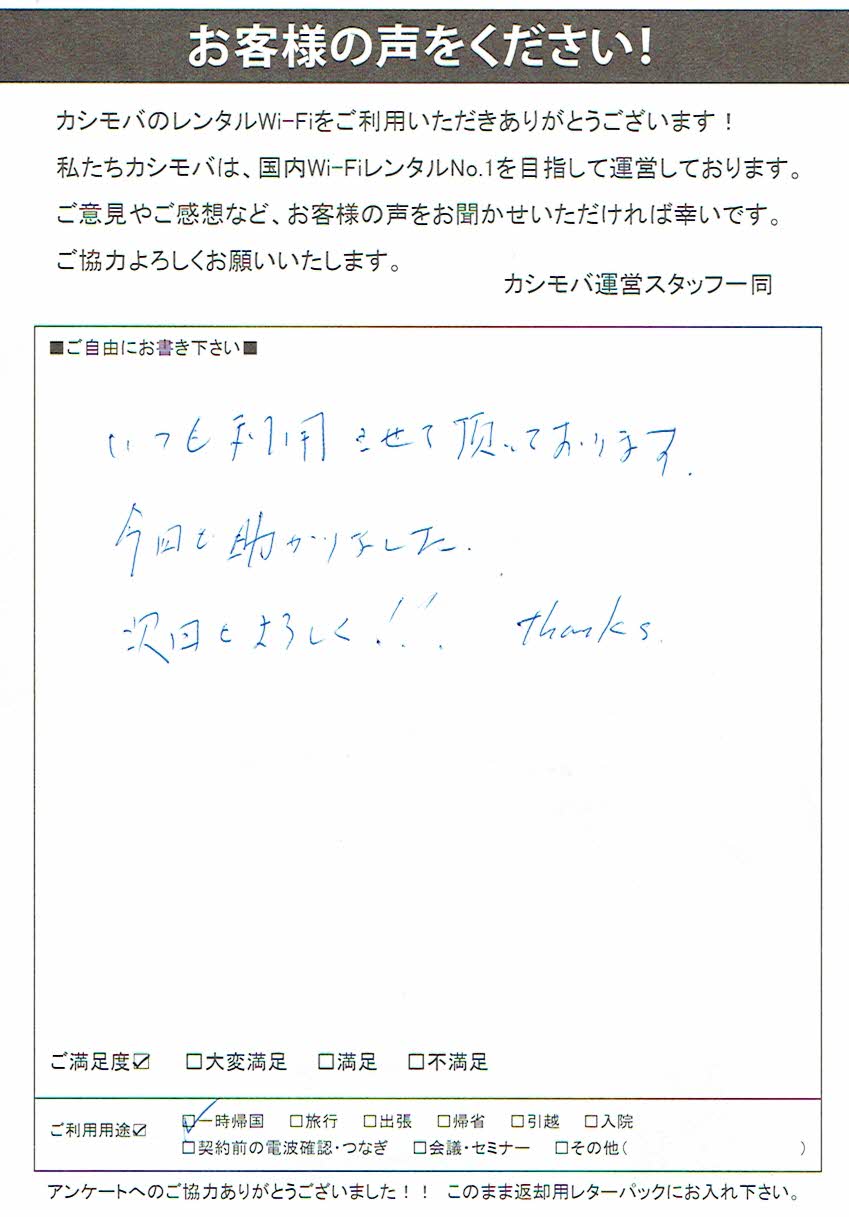 お客様の声をください!
カシモバのレンタルWi-Fiをご利用いただきありがとうございます!
私たちカシモバは、国内Wi-FiレンタルNo.1を目指して運営しております。
ご意見やご感想など、お客様の声をお聞かせいただければ幸いです。
ご協力よろしくお願いいたします。
カシモバ運営スタッフ一同
■ご自由にお書き下さい■
いつも利用させて頂いております.
今回も助かりました.
次回もよろしく!!! thanks.
ご満足度☑ □大変満足 □満足 □不満足
ご利用用途☑ ☑一時帰国 □旅行 □出張 □帰省 □引越 □入院
□契約前の電波確認・つなぎ □会議・セミナー □その他( )
アンケートへのご協力ありがとうございました!! このまま返却用レターパックにお入れ下さい。